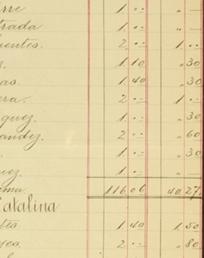 rre 1 .. " —
trada 1 .. " —
uentes. 2 .. 1 ..
z. 1 10 " 30
as. 1 40 " 30
era. 2 .. 1 ..
quez. 1 .. " 30
andez. 2 .. " 60
1 .. " 30
uez. 1 .. " —
uma 116 06 40 27
Catalina
1 40 1 50
2 .. " 80